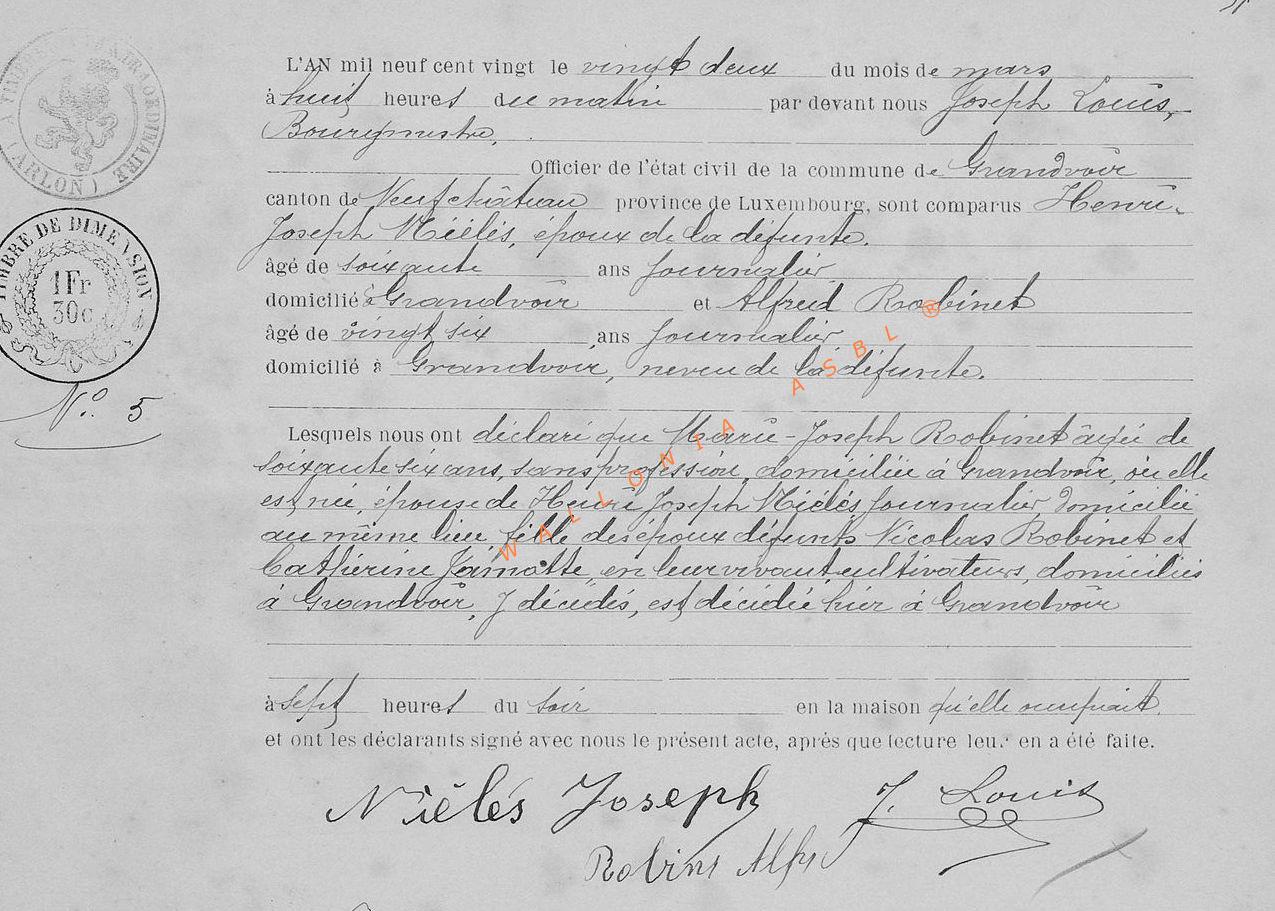 L'AN mil neuf cent vingt le vingt deux du mois de mars
à huit heures du matin par devant nous Joseph Louis,
Bourgmestre,
Officier de l'état civil de la commune de Grandvoir
canton de Neufchâteau province de Luxembourg, sont comparus Henri-
Joseph Niélès, époux de la défunte.
âgé de soixante ans journalier
domicilié à Grandvoir et Alfred Robinet
âgé de vingt six ans Journalier
domicilié à Grandvoir, neveu de la défunte.
Lesquels nous ont déclaré que Marie-Joseph Robinet âgée de
soixante six ans, sans profession, domiciliée à Grandvoir, où elle
est née, épouse de Henri Joseph Niélès journalier, domicilié
au même lieu fille des époux défunts Nicolas Robinet et
Catherine Jamotte en leur vivant cultivateurs, domiciliés
à Grandvoir, y décédés, est décédée hier à Grandvoir
à sept heures du soir en la maison qu'elle occupait.
et ont les déclarants signé avec nous le présent acte, après que lecture leur en a été faite.
Niélès Joseph J. Louis
Robinet Alfred
TIMBRE EXTRAORDINAIRE
(ARLON)
TIMBRE DE DIMENSION
1 Fr
30c
N°. 5
WALLONIA ASBL ®